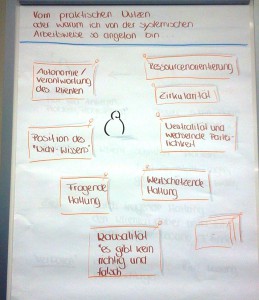 Vom praktischen Nutzen
oder warum ich von der systemischen
Arbeitsweise so angetan bin
Autonomie/
Verantwortung
des Klienten
Ressourcenorientierung
Zirkularität
Position des
"Nicht-Wissens"
Neutralität und
wechselnde Partei-
lichkeit
Fragende
Haltung
Wertschätzende
Haltung
Kausalität
"es gibt kein
richtig und
falsch"